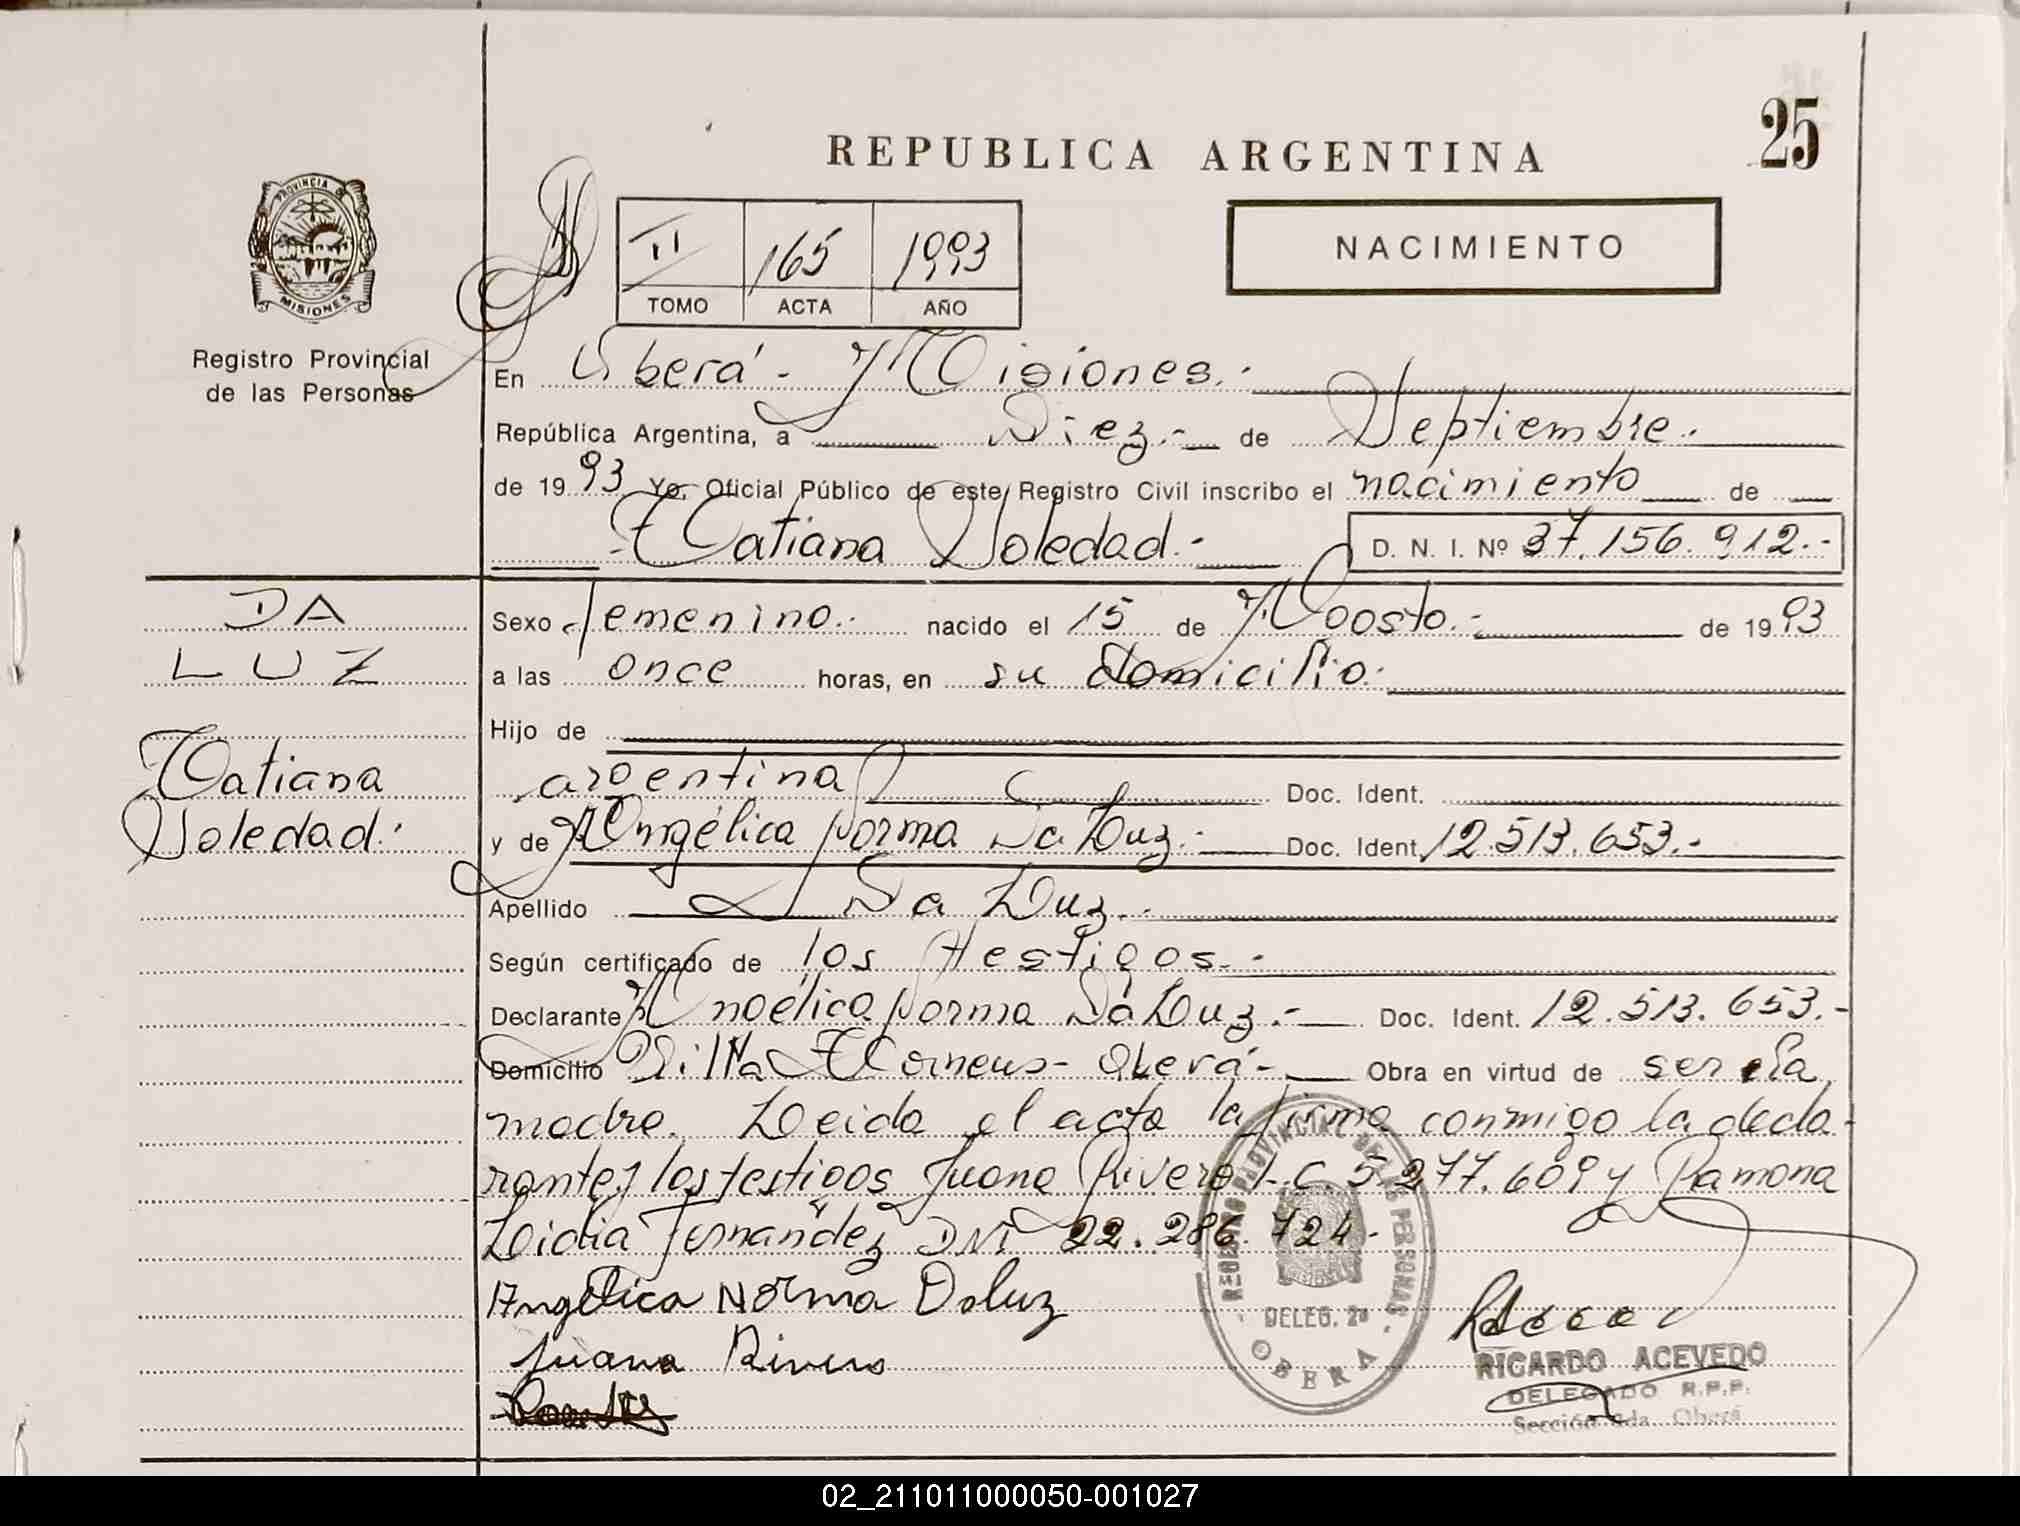 25
REPUBLICA ARGENTINA
PROVINCIA DE
MISIONES
Registro Provincial
de las Personas
II 165 1993
TOMO ACTA AÑO
NACIMIENTO
En Oberá - Misiones.-
República Argentina, a Diez.- de Septiembre.
de 19 93 Yo, Oficial Público de este Registro Civil inscribo el nacimiento de
Tatiana Soledad.- D. N. I. Nº 37.156.912.-
DA
LUZ
Tatiana
Soledad.
Sexo femenino.- nacido el 15 de Agosto.- de 19 93
a las once horas, en su domicilio.
Hijo de
argentina Doc. Ident.
y de Angélica Norma Da Luz.- Doc. Ident. 12.513.653.-
Apellido Da Luz.-
Según certificado de los testigos.-
Declarante Angélica Norma Da Luz.- Doc. Ident. 12.513.653.-
Domicilio Villa - Oberá- Obra en virtud de ser la
madre. Leida el acta la firma conmigo la decla-
rante y los testigos Juana Rivero L.C. 5.277.609 y Ramona
Lidia Fernandez DNI 22.286.724-
Angelica Norma Daluz
Juana Rivero
REGISTRO PROVINCIAL DE LAS PERSONAS
DELEG. 2a
OBERA
RICARDO ACEVEDO
DELEGADO R.P.P.
Sección 2da. Oberá
02_211011000050-001027